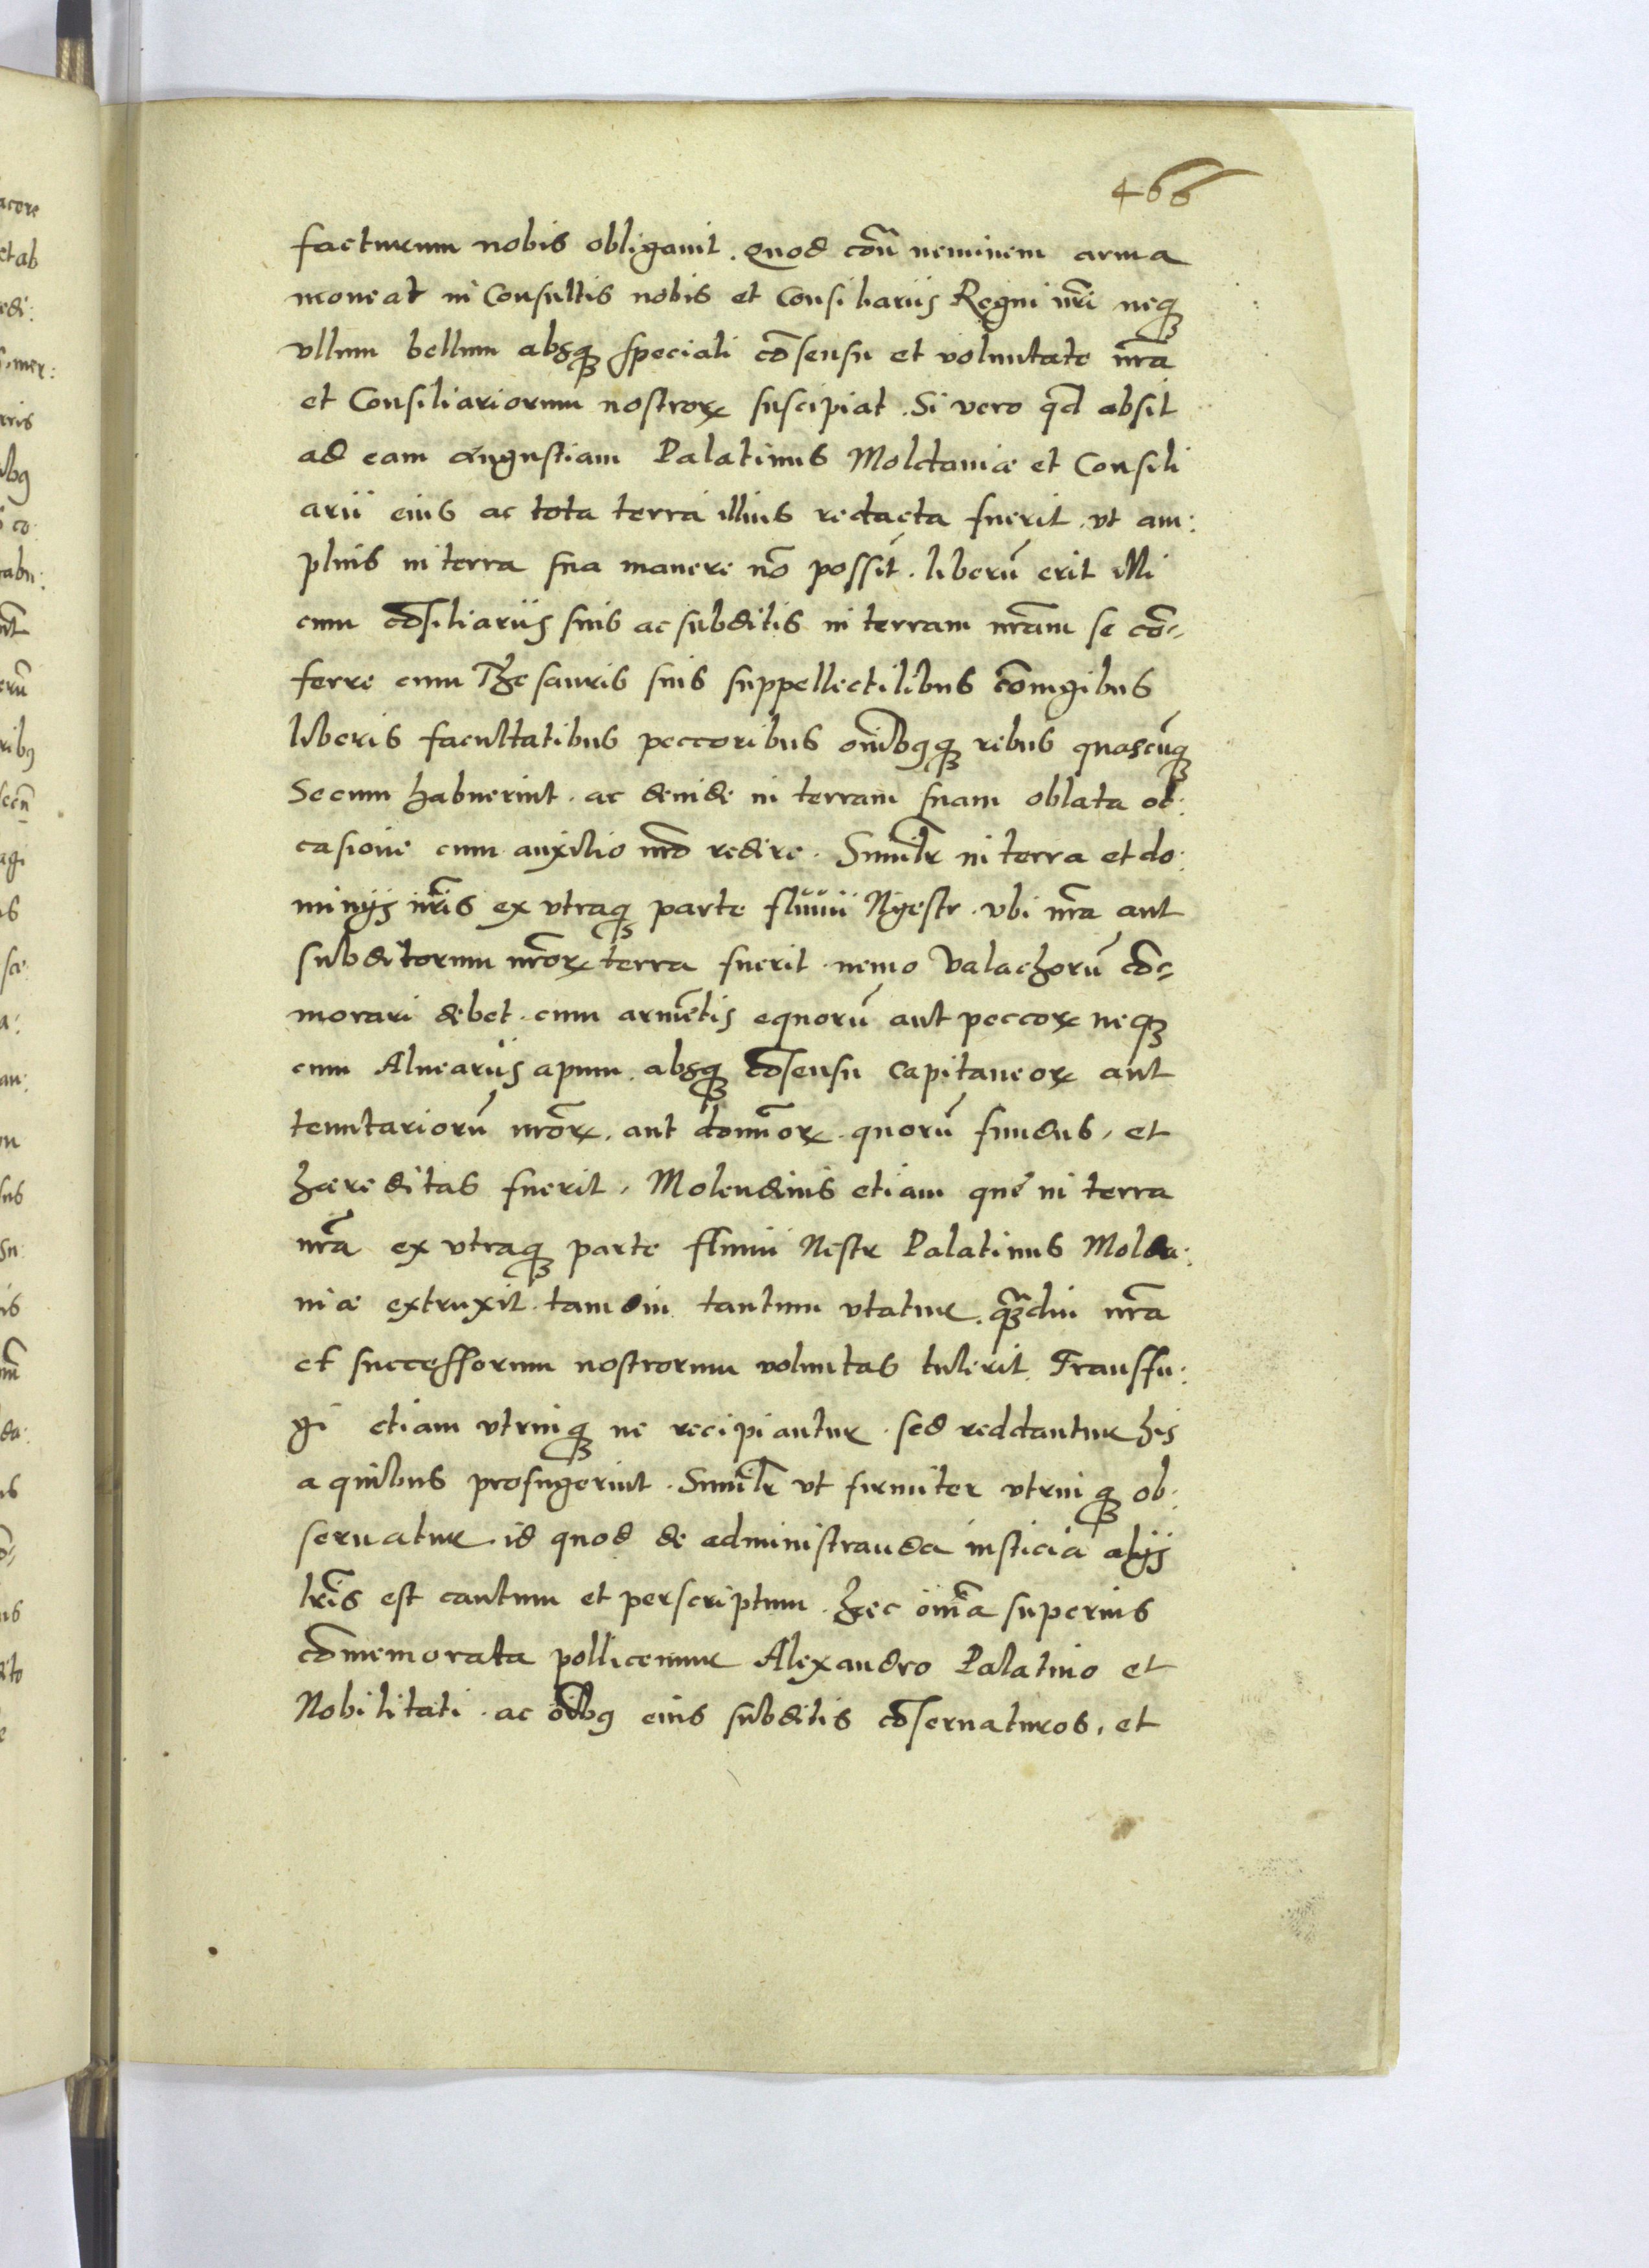 466
facturum nobis obligauit. Quod cōn̄ neminem arma
moueat in Consultis nobis et Consiliariis Regni nr̄i neqꝫ
vllum bellum absqꝫ speciali cōsensu et voluntate nr̄a
et Consiliariorum nostroꝝ suscipiat. Si vero qd̄ absit
ad eam angustiam Palatinus Moldauiæ et Consili
arii eius ac tota terra illius redacta fuerit. vt am:
plius in terra sua manere nō possit. liberū erit illi
cum cōsiliariis suis ac subditis in terram nr̄am se cō-
ferre cum Thesauris suis suppellectilibus cōiugibus
liberis facultatibus peccoribus om̄ibqꝫ rebus quascūqꝫ
Secum habuerint. ac deinde in terram suam oblata oc:
casione cum auxilio nr̄o redire. Similr̄ in terra et do:
minijs nr̄is ex vtraqꝫ parte fluuii Nyestr. vbi nr̄a aut
subditorum nr̄oꝝ terra fuerit. nemo Valachorū cō-
morari debet. cum armētis equorū aut peccoꝝ neqꝫ
cum Aluariis apum. absqꝫ cōsensu Capitaneoꝝ aut
tenutariorū nr̄oꝝ. aut domīoꝝ. quorū fundus, et
hæreditas fuerit, Molendinis etiam quę in terra
nr̄a ex vtraqꝫ parte fluuii Nestr Palatinus Molda:
uiæ extruxit. tam diu tantum vtatur. qꝫdiu nr̄a
et successorum nostrorum voluntas tulerit. Transfu:
gi etiam vtrinqꝫ ne recipiantur. sed reddantur his
a quibus profugerint. Similr̄ vt firmiter vtrinqꝫ ob:
seruatur id quod de administranda iusticia alijs
lr̄is est cautum et perscriptum. Hec om̄ia superius
cōmemorata pollicemur Alexandro Palatino et
Nobilitati. ac oībꝰ eius subditis cōseruaturos, et